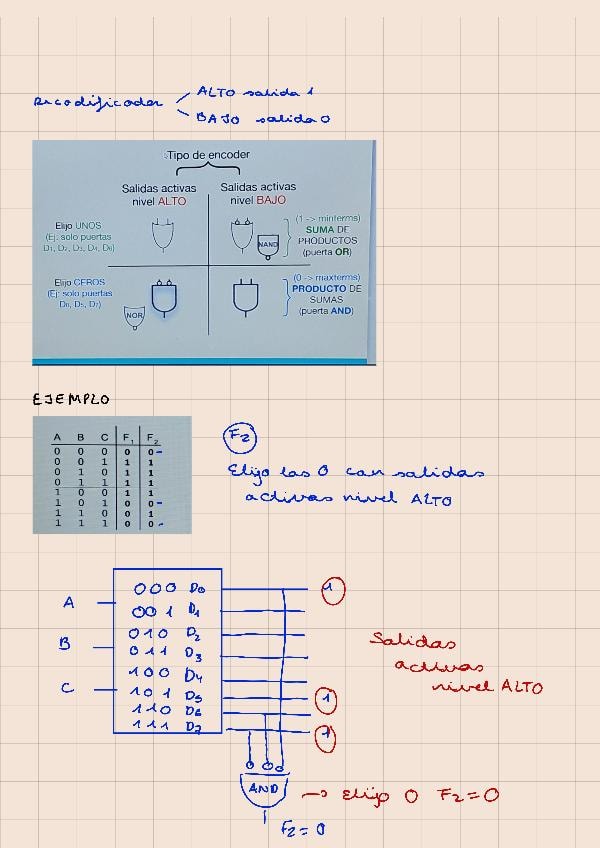 Decodificador
ALTO salida 1
BAJO salida 0
Tipo de encoder
Salidas activas nivel ALTO
Salidas activas nivel BAJO
Elijo UNOS
(Ej: solo puertas
D₁, D₂, D₃, D₄, D₆)
NAND
(1 -> minterms)
SUMA DE
PRODUCTOS
(puerta OR)
Elijo CEROS
(Ej: solo puertas
D₀, D₅, D₇)
NOR
(0 -> maxterms)
PRODUCTO DE
SUMAS
(puerta AND)
EJEMPLO
A B C F₁ F₂
0 0 0 0 0
0 0 1 1 1
0 1 0 1 1
0 1 1 1 1
1 0 0 1 1
1 0 1 0 0
1 1 0 0 1
1 1 1 0 0
F₂
Elijo los 0 con salidas
activas nivel ALTO
A
B
C
000 D₀
001 D₁
010 D₂
011 D₃
100 D₄
101 D₅
110 D₆
111 D₇
1
1
1
Salidas
activas
nivel ALTO
AND
→ Elijo 0 F₂=0
F₂=0